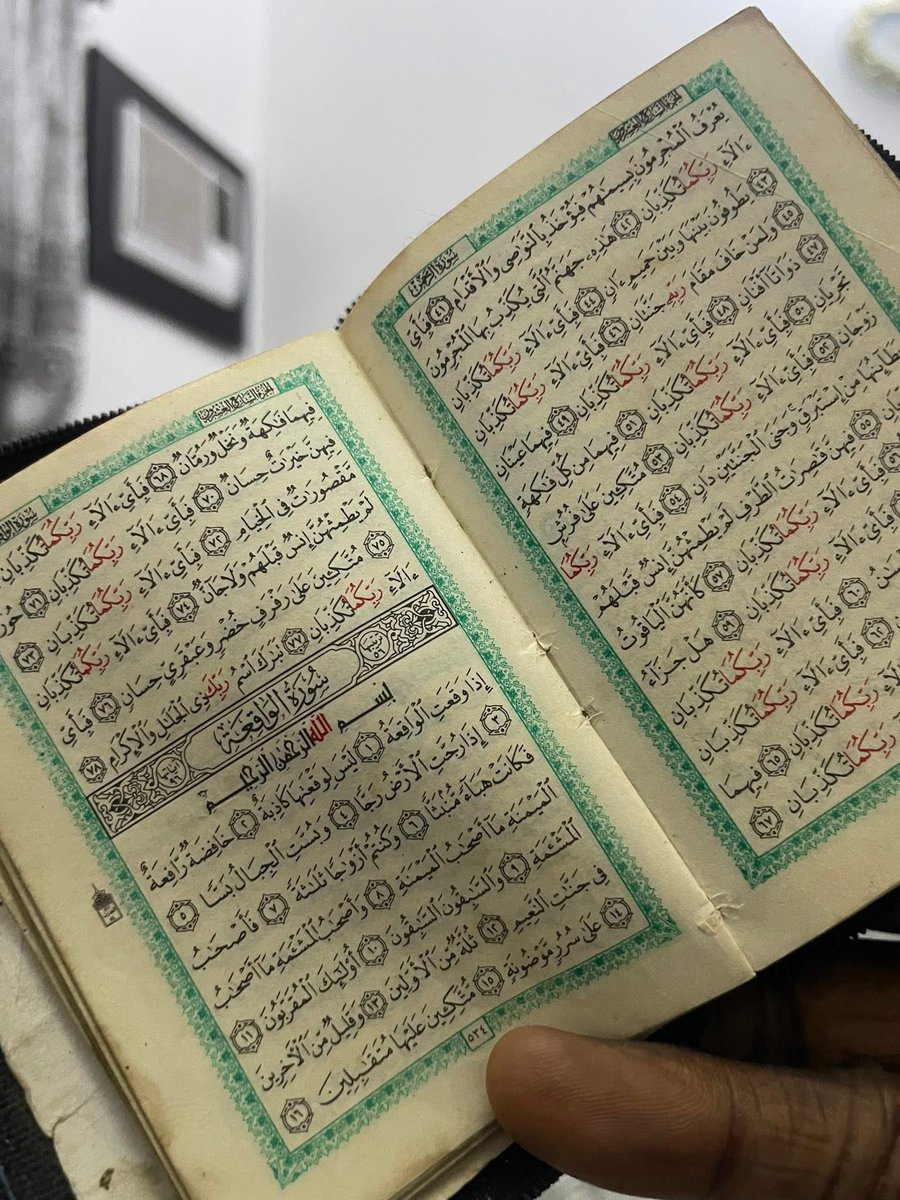 الجزء السابع والعشرون
سورة الرحمن
يُعْرَفُ ٱلْمُجْرِمُونَ بِسِيمَٰهُمْ فَيُؤْخَذُ بِٱلنَّوَٰصِى وَٱلْأَقْدَامِ ٤١ فَبِأَىِّ
ءَالَآءِ رَبِّكُمَا تُكَذِّبَانِ ٤٢ هَٰذِهِۦ جَهَنَّمُ ٱلَّتِى يُكَذِّبُ بِهَا ٱلْمُجْرِمُونَ
٤٣ يَطُوفُونَ بَيْنَهَا وَبَيْنَ حَمِيمٍ ءَانٍ ٤٤ فَبِأَىِّ ءَالَآءِ رَبِّكُمَا تُكَذِّبَانِ
٤٥ وَلِمَنْ خَافَ مَقَامَ رَبِّهِۦ جَنَّتَانِ ٤٦ فَبِأَىِّ ءَالَآءِ رَبِّكُمَا تُكَذِّبَانِ
٤٧ ذَوَاتَآ أَفْنَانٍ ٤٨ فَبِأَىِّ ءَالَآءِ رَبِّكُمَا تُكَذِّبَانِ ٤٩ فِيهِمَا عَيْنَانِ
تَجْرِيَانِ ٥٠ فَبِأَىِّ ءَالَآءِ رَبِّكُمَا تُكَذِّبَانِ ٥١ فِيهِمَا مِن كُلِّ فَٰكِهَةٍ
زَوْجَانِ ٥٢ فَبِأَىِّ ءَالَآءِ رَبِّكُمَا تُكَذِّبَانِ ٥٣ مُتَّكِـِٔينَ عَلَىٰ فُرُشٍۭ
بَطَآئِنُهَا مِنْ إِسْتَبْرَقٍ وَجَنَى ٱلْجَنَّتَيْنِ دَانٍ ٥٤ فَبِأَىِّ ءَالَآءِ رَبِّكُمَا
٥٥ فِيهِنَّ قَٰصِرَٰتُ ٱلطَّرْفِ لَمْ يَطْمِثْهُنَّ إِنسٌ قَبْلَهُمْ
٥٦ فَبِأَىِّ ءَالَآءِ رَبِّكُمَا تُكَذِّبَانِ ٥٧ كَأَنَّهُنَّ ٱلْيَاقُوتُ
فَبِأَىِّ ءَالَآءِ رَبِّكُمَا تُكَذِّبَانِ ٥٩ هَلْ جَزَآءُ
٦٠ فَبِأَىِّ ءَالَآءِ رَبِّكُمَا تُكَذِّبَانِ
٦٢ فَبِأَىِّ ءَالَآءِ رَبِّكُمَا تُكَذِّبَانِ
ءَالَآءِ رَبِّكُمَا تُكَذِّبَانِ ٦٥ فِيهِمَا
رَبِّكُمَا تُكَذِّبَانِ ٦٧
الجزء السابع والعشرون
فِيهِمَا فَٰكِهَةٌ وَنَخْلٌ وَرُمَّانٌ ٦٨ فَبِأَىِّ ءَالَآءِ رَبِّكُمَا تُكَذِّبَانِ
فِيهِنَّ خَيْرَٰتٌ حِسَانٌ ٧٠ فَبِأَىِّ ءَالَآءِ رَبِّكُمَا تُكَذِّبَانِ ٧١ حُورٌ
مَّقْصُورَٰتٌ فِى ٱلْخِيَامِ ٧٢ فَبِأَىِّ ءَالَآءِ رَبِّكُمَا تُكَذِّبَانِ ٧٣
لَمْ يَطْمِثْهُنَّ إِنسٌ قَبْلَهُمْ وَلَا جَآنٌّ ٧٤ فَبِأَىِّ ءَالَآءِ رَبِّكُمَا تُكَذِّبَانِ
٧٥ مُتَّكِـِٔينَ عَلَىٰ رَفْرَفٍ خُضْرٍ وَعَبْقَرِىٍّ حِسَانٍ ٧٦ فَبِأَىِّ
ءَالَآءِ رَبِّكُمَا تُكَذِّبَانِ ٧٧ تَبَٰرَكَ ٱسْمُ رَبِّكَ ذِى ٱلْجَلَٰلِ وَٱلْإِكْرَامِ ٧٨
سُورَةُ الوَاقِعَة
بِسْمِ ٱللَّهِ ٱلرَّحْمَٰنِ ٱلرَّحِيمِ
إِذَا وَقَعَتِ ٱلْوَاقِعَةُ ١ لَيْسَ لِوَقْعَتِهَا كَاذِبَةٌ ٢ خَافِضَةٌ رَّافِعَةٌ
٣ إِذَا رُجَّتِ ٱلْأَرْضُ رَجًّا ٤ وَبُسَّتِ ٱلْجِبَالُ بَسًّا ٥
فَكَانَتْ هَبَآءً مُّنۢبَثًّا ٦ وَكُنتُمْ أَزْوَٰجًا ثَلَٰثَةً ٧ فَأَصْحَٰبُ
ٱلْمَيْمَنَةِ مَآ أَصْحَٰبُ ٱلْمَيْمَنَةِ ٨ وَأَصْحَٰبُ ٱلْمَشْـَٔمَةِ مَآ أَصْحَٰبُ
ٱلْمَشْـَٔمَةِ ٩ وَٱلسَّٰبِقُونَ ٱلسَّٰبِقُونَ ١٠ أُو۟لَٰٓئِكَ ٱلْمُقَرَّبُونَ ١١
فِى جَنَّٰتِ ٱلنَّعِيمِ ١٢ ثُلَّةٌ مِّنَ ٱلْأَوَّلِينَ ١٣ وَقَلِيلٌ مِّنَ ٱلْءَاخِرِينَ
١٤ عَلَىٰ سُرُرٍ مَّوْضُونَةٍ ١٥ مُّتَّكِـِٔينَ عَلَيْهَا مُتَقَٰبِلِينَ ١٦
٥٣٤